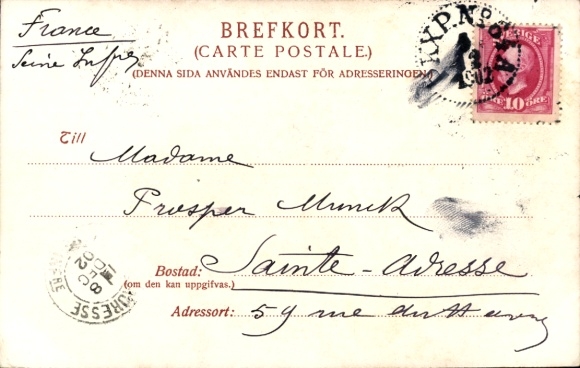 France
BREFKORT.
Seine Infre
(CARTE POSTALE.)
(DENNA SIDA ANVÄNDES ENDAST FÖR ADRESSERINGEN.)
PKXP. No
1902
SVERIGE
10 ÖRE
Till
Madame
Prosper Munck
Bostad: Sainte-Adresse
(om den kan uppgifvas.)
Adressort: 59 rue du Havre
ADRESSE
02